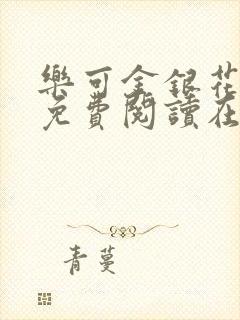 樂可金銀花
免費閱讀在
青蔓